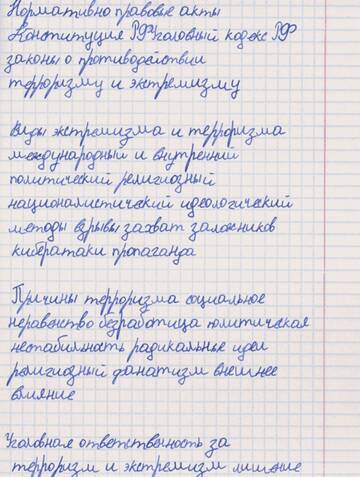 Нормативно правовые акты
Конституция РФ Уголовный кодекс РФ
законы о противодействии
терроризму и экстремизму
Виды экстремизма и терроризма
международный и внутренний
политический религиозный
националистический идеологический
методы взрывы захват заложников
кибератаки пропаганда
Причины терроризма социальное
неравенство безработица политическая
нестабильность радикальные идеи
религиозный фанатизм внешнее
влияние
Уголовная ответственность за
терроризм и экстремизм лишение